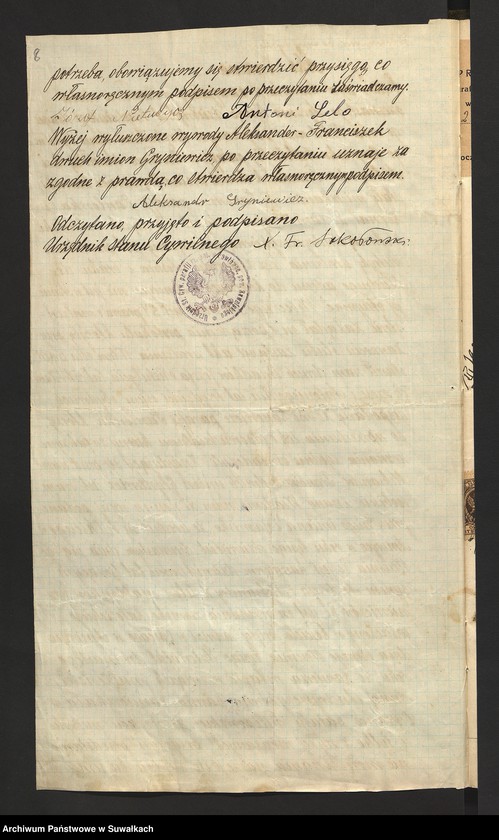 8
potrzeba, obowiązujemy się stwierdzić przysięgą, co
własnoręcznym podpisem po przeczytaniu zaświadczamy.
Antoni Lelo
Wyżej wyłuszczone wywody Aleksander-Franciszek
dwuch imion Gryniewicz po przeczytaniu uznaje za
zgodne z prawdą, co stwierdza własnoręcznym podpisem.
Aleksandr Gryniewicz.
Odczytano, przyjęto i podpisano
Urzędnik Stanu Cywilnego X. Fr. Sokołowski
Archiwum Państwowe w Suwałkach